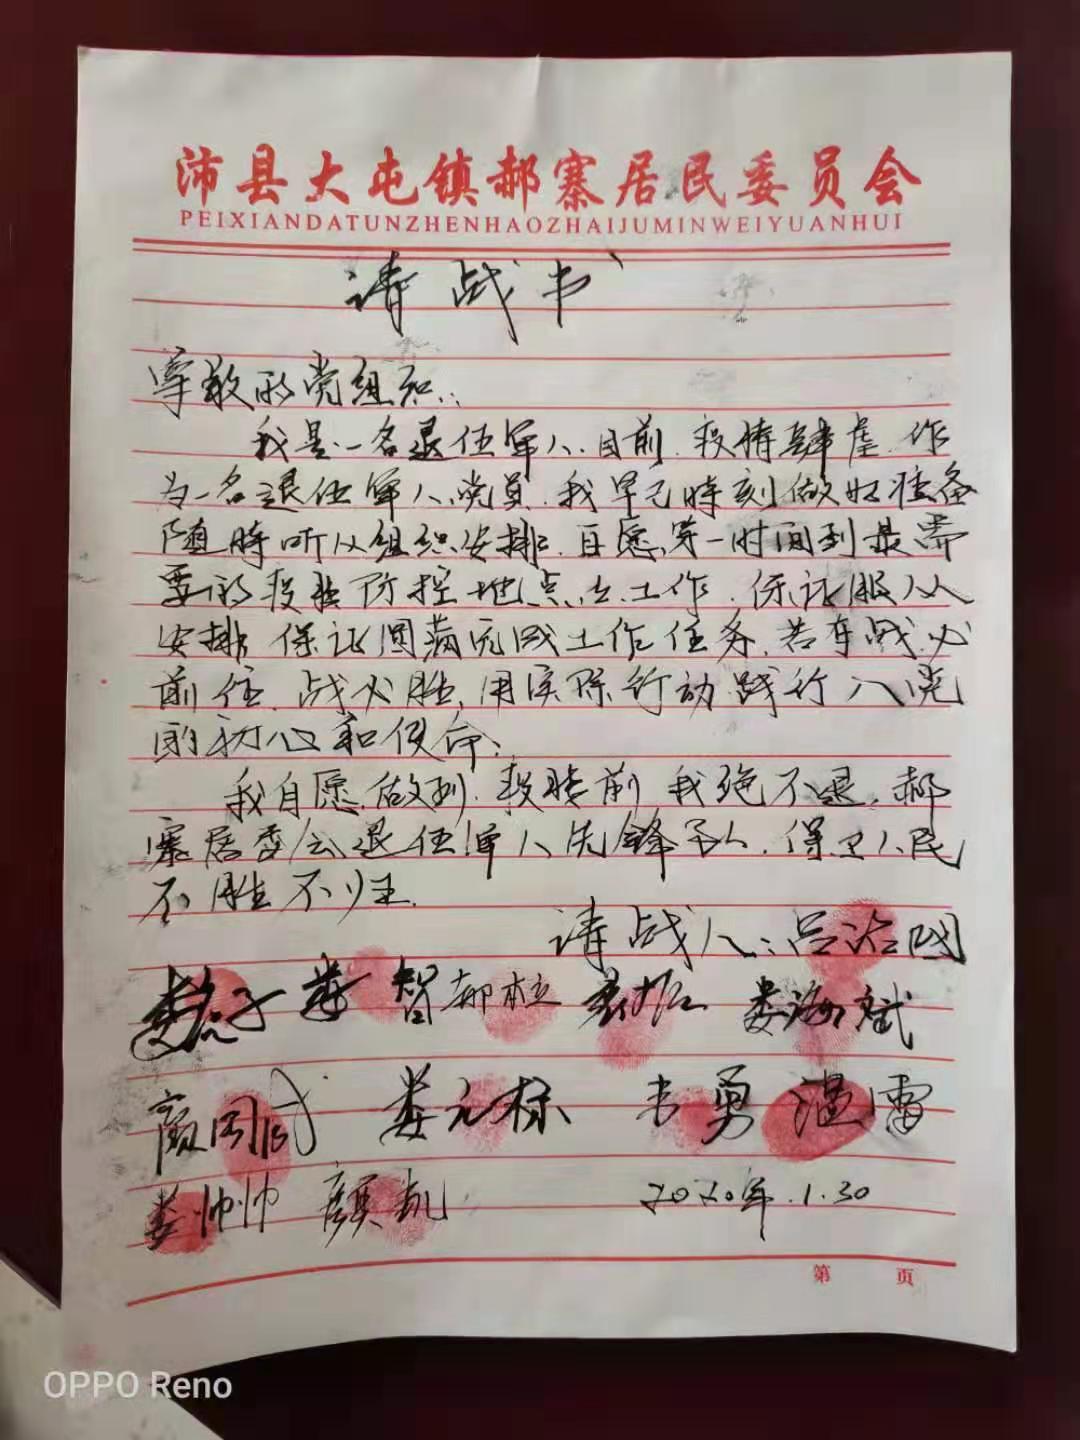 沛县大屯镇郝寨居民委员会
PEIXIANDATUNZHENHAOZHAIJUMINWEIYUANHUI
请战书
尊敬的党组织:
我是一名退伍军人.目前.疫情肆虐.作
为一名退伍军人党员.我早已時刻做好准备
随時听从组织安排.自愿第一时间到最需
要的疫情防控地点去工作.保证服从
安排.保证圆满完成工作任务.若有战.必
前往.战必胜,用实际行动践行入党
的初心和使命.
我自愿做到.疫情前我绝不退.郝
寨居委会退伍军人先锋队.保卫人民
不胜不归.
请战人:吕治国
智 郝柱 娄海斌
颜国成 娄元标 韦勇 温雷
娄帅帅 颜凯 2020年.1.30
第 页
OPPO Reno